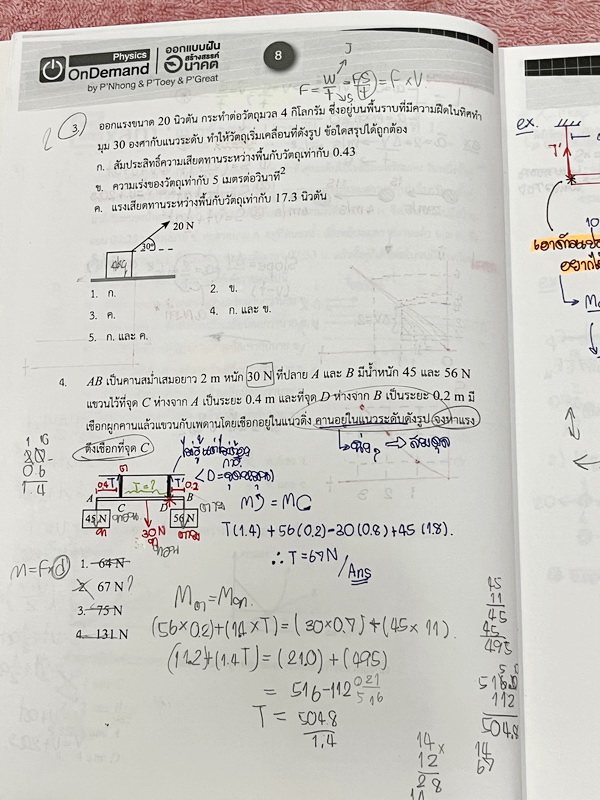 Physics
OnDemand
by P'Nhong & P'Toey & P'Great
ออกแบบฝัน
สร้างสรรค์
อนาคต
8
J
F = W/t = FS/t = F x V
3. ออกแรงขนาด 20 นิวตัน กระทำต่อวัตถุมวล 4 กิโลกรัม ซึ่งอยู่บนพื้นราบที่มีความฝืดในทิศทำ
มุม 30 องศากับแนวระดับ ทำให้วัตถุเริ่มเคลื่อนที่ดังรูป ข้อใดสรุปได้ถูกต้อง
ก. สัมประสิทธิ์ความเสียดทานระหว่างพื้นกับวัตถุเท่ากับ 0.43
ข. ความเร่งของวัตถุเท่ากับ 5 เมตรต่อวินาที²
ค. แรงเสียดทานระหว่างพื้นกับวัตถุเท่ากับ 17.3 นิวตัน
20 N
30°
4kg
1. ก.
2. ข.
3. ค.
4. ก. และ ข.
5. ก. และ ค.
4. AB เป็นคานสม่ำเสมอยาว 2 m หนัก 30 N ที่ปลาย A และ B มีน้ำหนัก 45 และ 56 N
แขวนไว้ที่จุด C ห่างจาก A เป็นระยะ 0.4 m และที่จุด D ห่างจาก B เป็นระยะ 0.2 m มี
เชือกผูกคานแล้วแขวนกับเพดานโดยเชือกอยู่ในแนวดิ่ง คานอยู่ในแนวระดับดังรูป จงหาแรง
ดึงเชือกที่จุด C
→ สมดุล
2.0
0.6
1.4
0.4
T = ?
T'
0.2
A
C
D
B
45 N
30 N
56 N
ทวน
ตาม
T(1.4) + 56(0.2) = 30(0.8) + 45(1.8).
∴ T = 67 N
/Ans
M = F x d
1. 64 N
2. 67 N ?
3. 75 N
4. 131 N
(56 x 0.2) + (1.4 x T) = (30 x 0.7) + (45 x 11).
(11.2) + (1.4T) = (21.0) + (495)
= 516 - 112
T = 504.8
1.4
45
11
45
45
495
516.0
112
504.8
14 x
12
28
14
67
ex.
T'
10